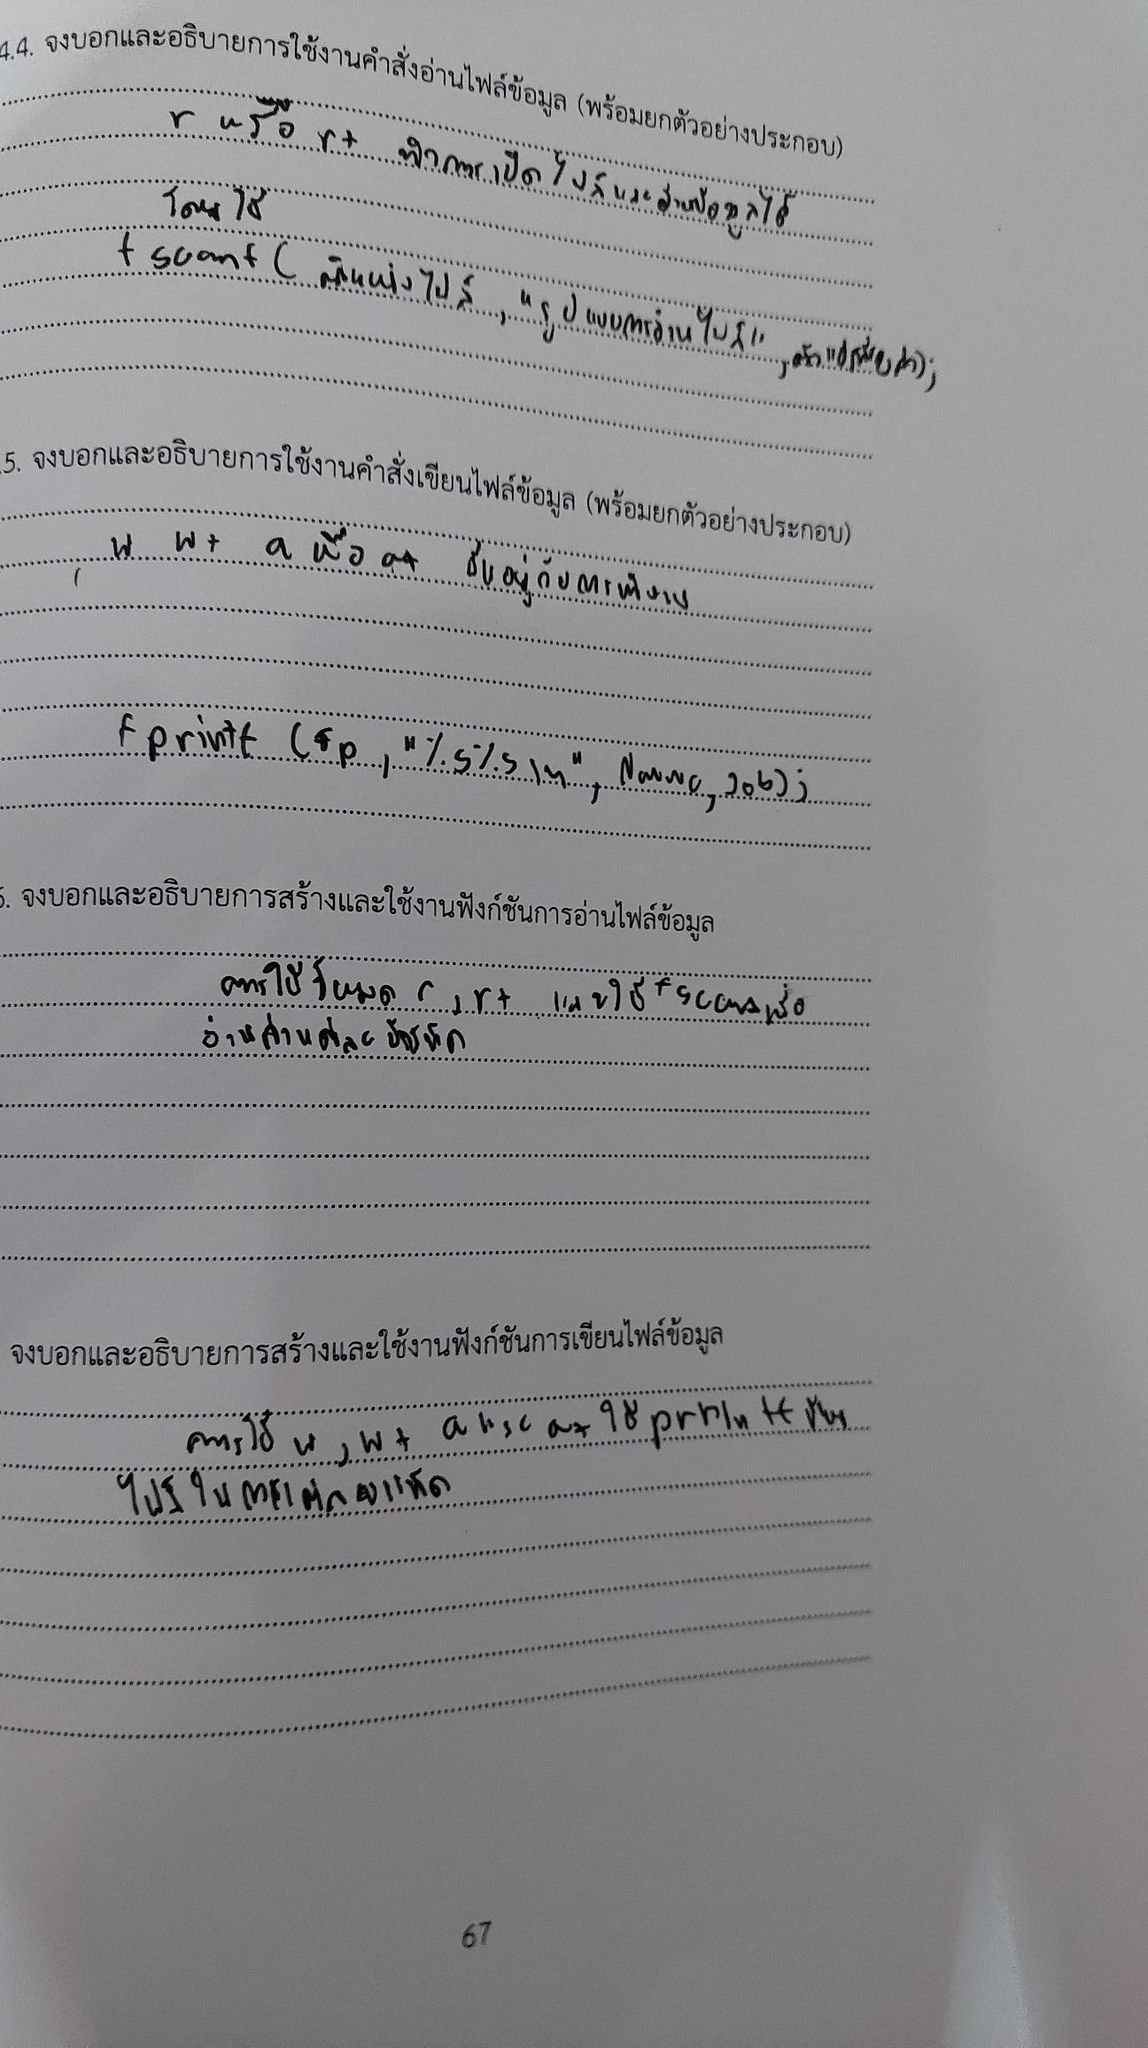 4.4. จงบอกและอธิบายการใช้งานคำสั่งอ่านไฟล์ข้อมูล (พร้อมยกตัวอย่างประกอบ)
r หรือ r+ ทำการเปิดไฟล์และอ่านข้อมูลได้
โดยใช้
fscanf( ตำแหน่งไฟล์, "รูปแบบการอ่านไฟล์",
.5. จงบอกและอธิบายการใช้งานคำสั่งเขียนไฟล์ข้อมูล (พร้อมยกตัวอย่างประกอบ)
w w+ a หรือ a+ ขึ้นอยู่กับการทำงาน
fprintf (fp, "%s%s\n", Name, Job);
6. จงบอกและอธิบายการสร้างและใช้งานฟังก์ชันการอ่านไฟล์ข้อมูล
การใช้โหมด r, r+ และใช้
อ่านค่าแต่ละบรรทัด
จงบอกและอธิบายการสร้างและใช้งานฟังก์ชันการเขียนไฟล์ข้อมูล
การใช้ w, w+ a และ a+ ใช้ เขียน
ไฟล์ใน
67